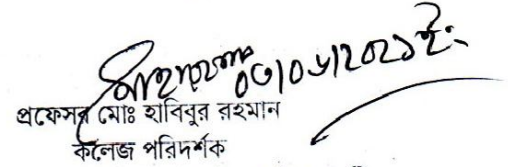 ০৩/০৬/২০২১ইং
প্রফেসর মোঃ হাবিবুর রহমান
কলেজ পরিদর্শক